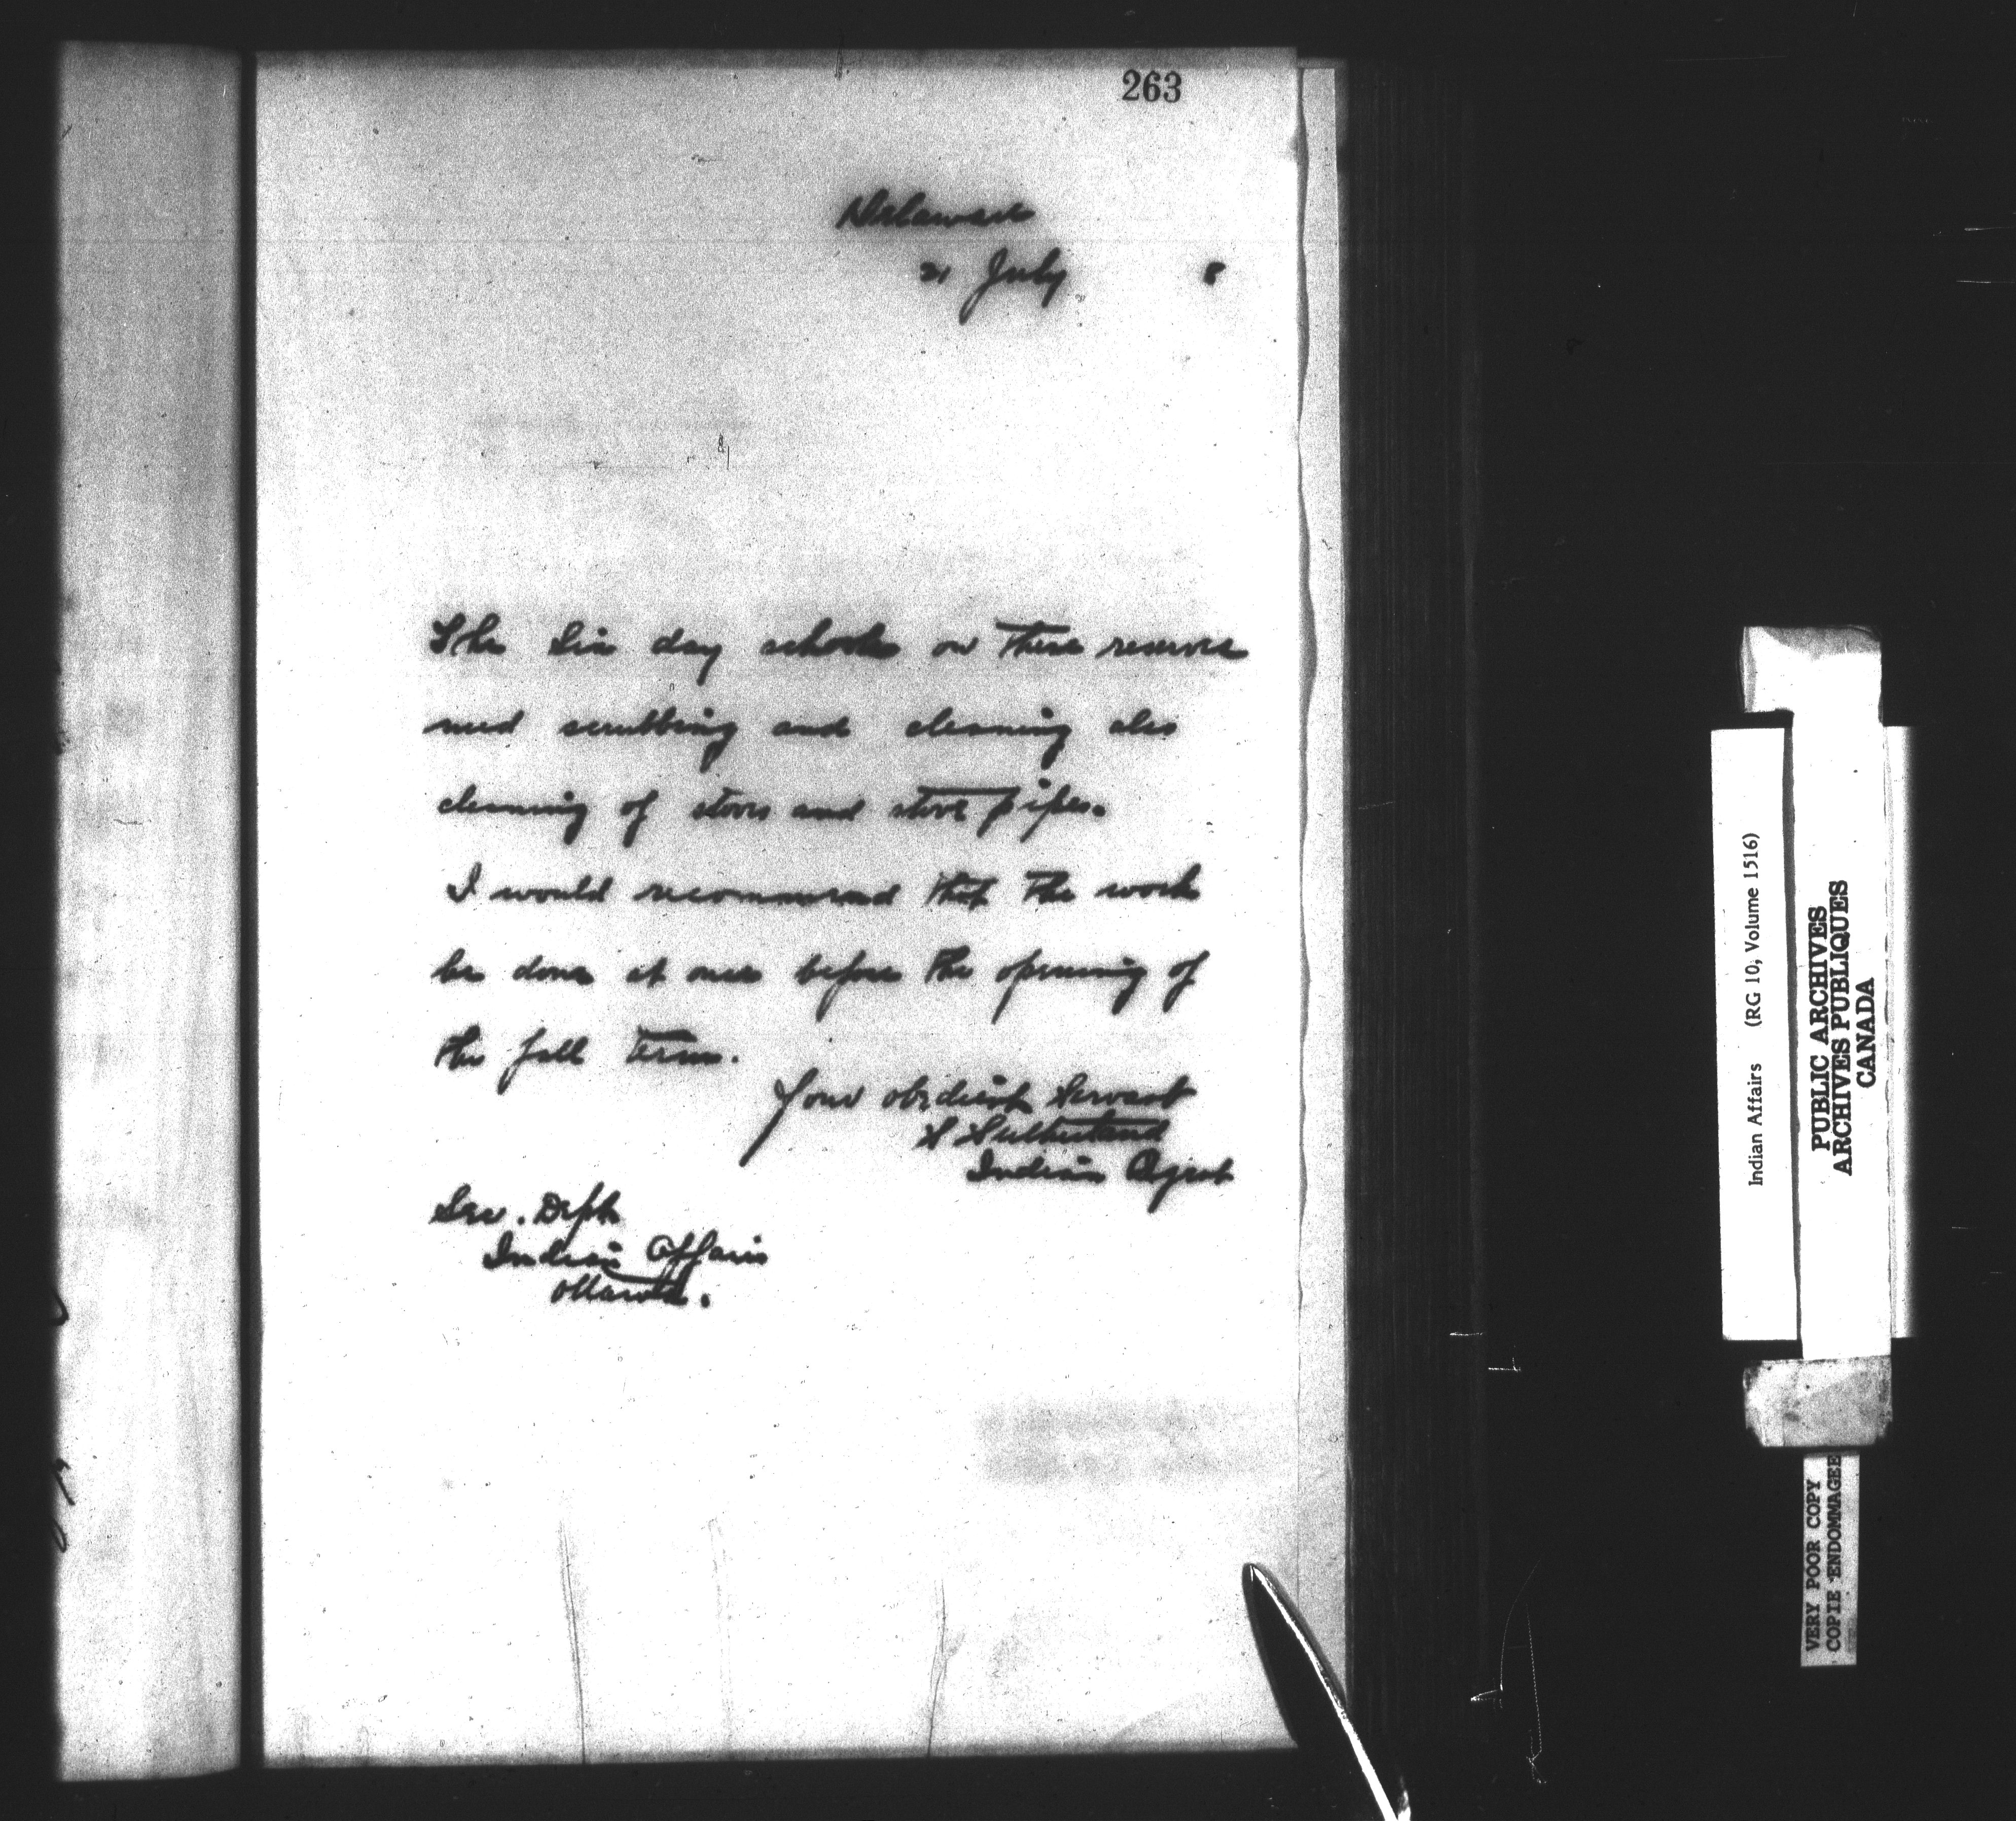 263
Delaware
21 July 8
The Six day schools on these reserves
need scrubbing and cleaning also
cleaning of stoves and stove pipes.
I would recommend that the work
be done at once before the opening of
the fall term.
Your obedient Servant
S Sutherland
Indian Agent
Sec. Dept
Indian Affairs
Ottawa.
Indian Affairs (RG 10, Volume 1516)
PUBLIC ARCHIVES
ARCHIVES PUBLIQUES
CANADA
VERY POOR COPY
COPIE ENDOMMAGEE